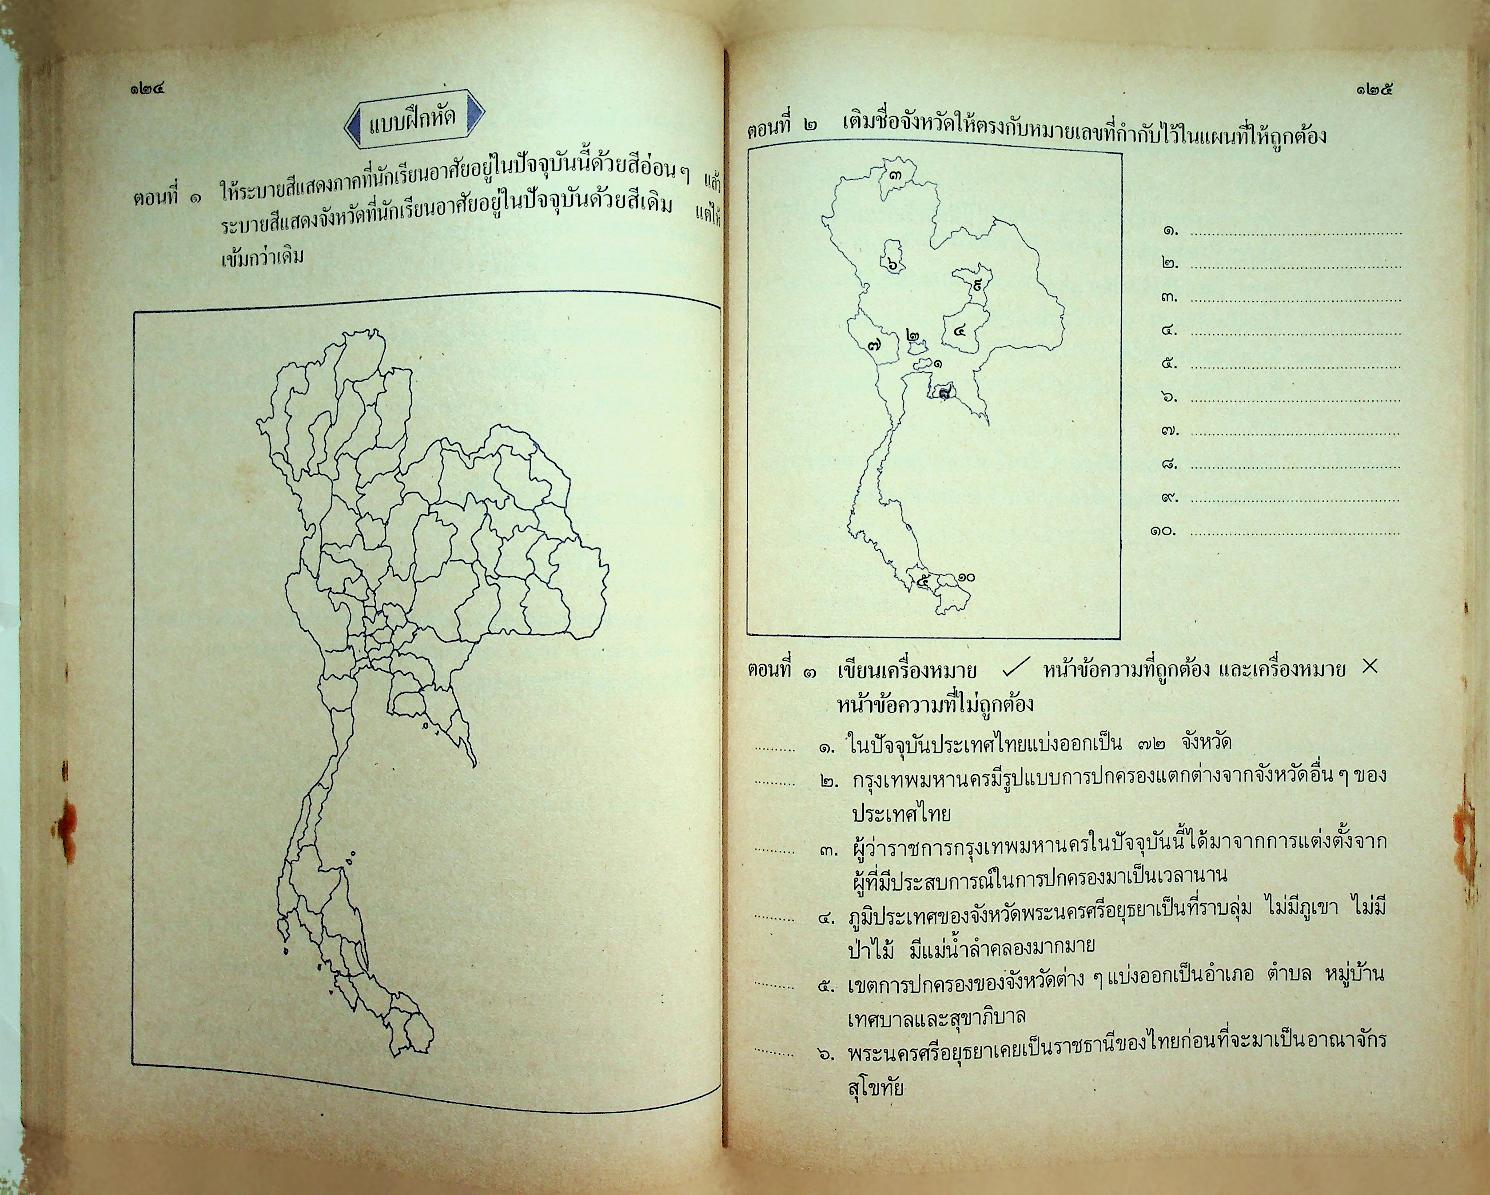 ๑๒๔
แบบฝึกหัด
ตอนที่ ๑ ให้ระบายสีแสดงภาคที่นักเรียนอาศัยอยู่ในปัจจุบันนี้ด้วยสีอ่อน ๆ แล้ว
ระบายสีแสดงจังหวัดที่นักเรียนอาศัยอยู่ในปัจจุบันด้วยสีเดิม แต่ให้
เข้มกว่าเดิม
๑๒๕
ตอนที่ ๒ เติมชื่อจังหวัดให้ตรงกับหมายเลขที่กำกับไว้ในแผนที่ให้ถูกต้อง
๓
๖
๙
๗
๒
๔
๑
๘
๕
๑๐
๑. ........................................
๒. ........................................
๓. ........................................
๔. ........................................
๕. ........................................
๖. ........................................
๗. ........................................
๘. ........................................
๙. ........................................
๑๐. ........................................
ตอนที่ ๓ เขียนเครื่องหมาย ✓ หน้าข้อความที่ถูกต้อง และเครื่องหมาย ×
หน้าข้อความที่ไม่ถูกต้อง
......... ๑. ในปัจจุบันประเทศไทยแบ่งออกเป็น ๗๒ จังหวัด
......... ๒. กรุงเทพมหานครมีรูปแบบการปกครองแตกต่างจากจังหวัดอื่น ๆ ของ
ประเทศไทย
......... ๓. ผู้ว่าราชการกรุงเทพมหานครในปัจจุบันนี้ได้มาจากการแต่งตั้งจาก
ผู้ที่มีประสบการณ์ในการปกครองมาเป็นเวลานาน
......... ๔. ภูมิประเทศของจังหวัดพระนครศรีอยุธยาเป็นที่ราบลุ่ม ไม่มีภูเขา ไม่มี
ป่าไม้ มีแม่น้ำลำคลองมากมาย
......... ๕. เขตการปกครองของจังหวัดต่าง ๆ แบ่งออกเป็นอำเภอ ตำบล หมู่บ้าน
เทศบาลและสุขาภิบาล
......... ๖. พระนครศรีอยุธยาเคยเป็นราชธานีของไทยก่อนที่จะมาเป็นอาณาจักร
สุโขทัย